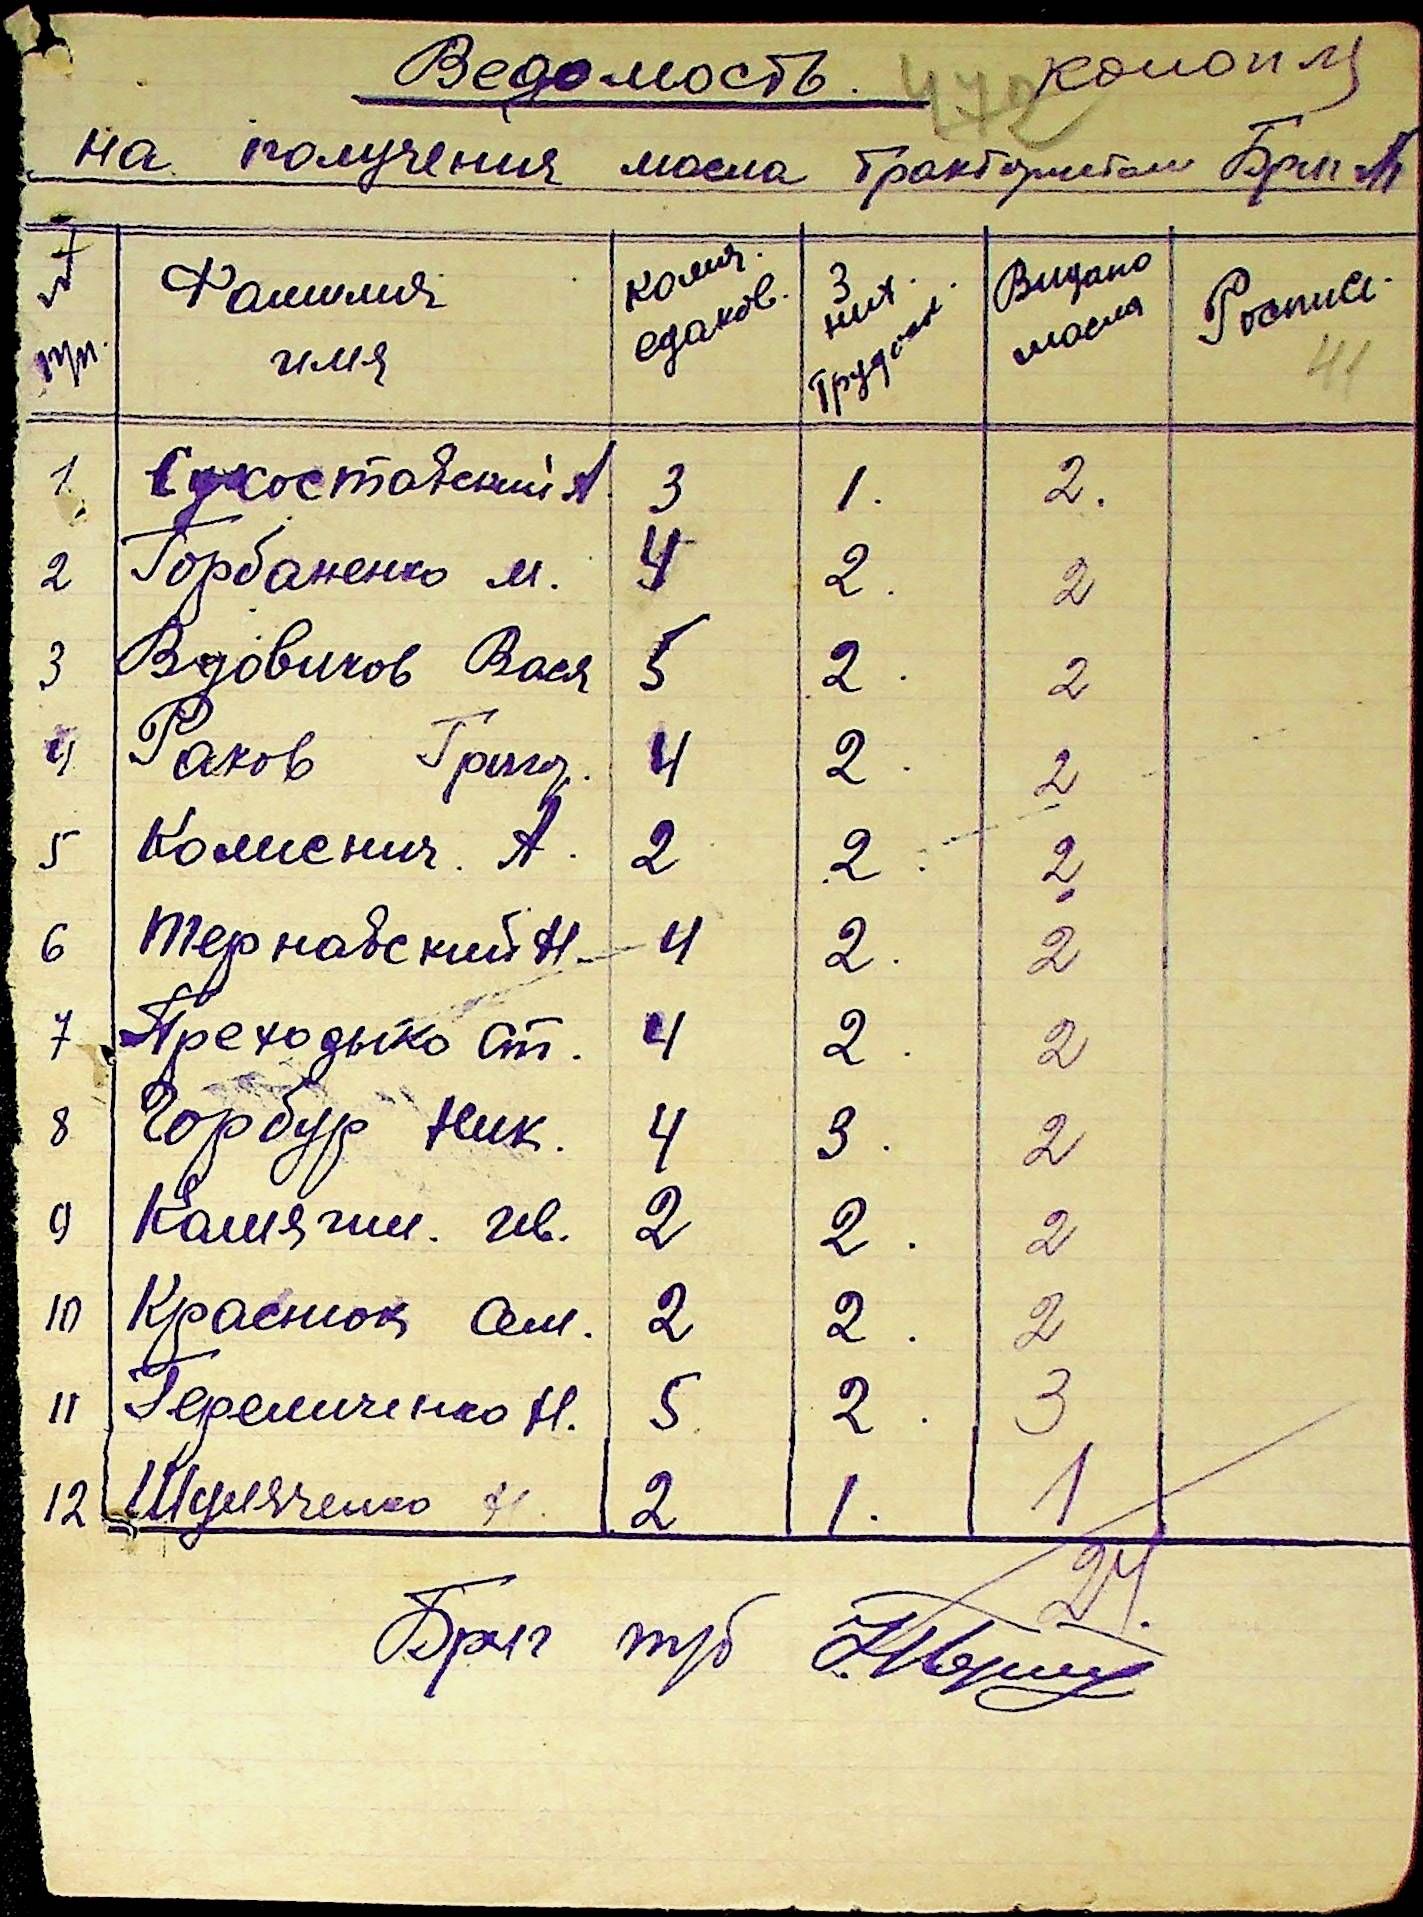 Ведомость. 472 конопл
на получения масла трактористам Бриг №1
№ пп. Фамилия имя колич. едаков. З них. трудосп. Видано масла Росписи. 41
1 Сухоставский А. 3 1. 2.
2 Горбаненко М. 4 2. 2
3 Вдовиков Вася 5 2. 2
4 Раков Григ. 4 2. 2
5 Колиснич. А. 2 2. 2
6 Тернавский Н. 4 2. 2
7 Преходько Ст. 4 2. 2
8 Горбур Ник. 4 3. 2
9 Ив. 2 2. 2
10 Краснюк Сем. 2 2. 2
11 Н. 5 2. 3
12 Шуляченко Н. 2 1. 1
24.
Бриг трб